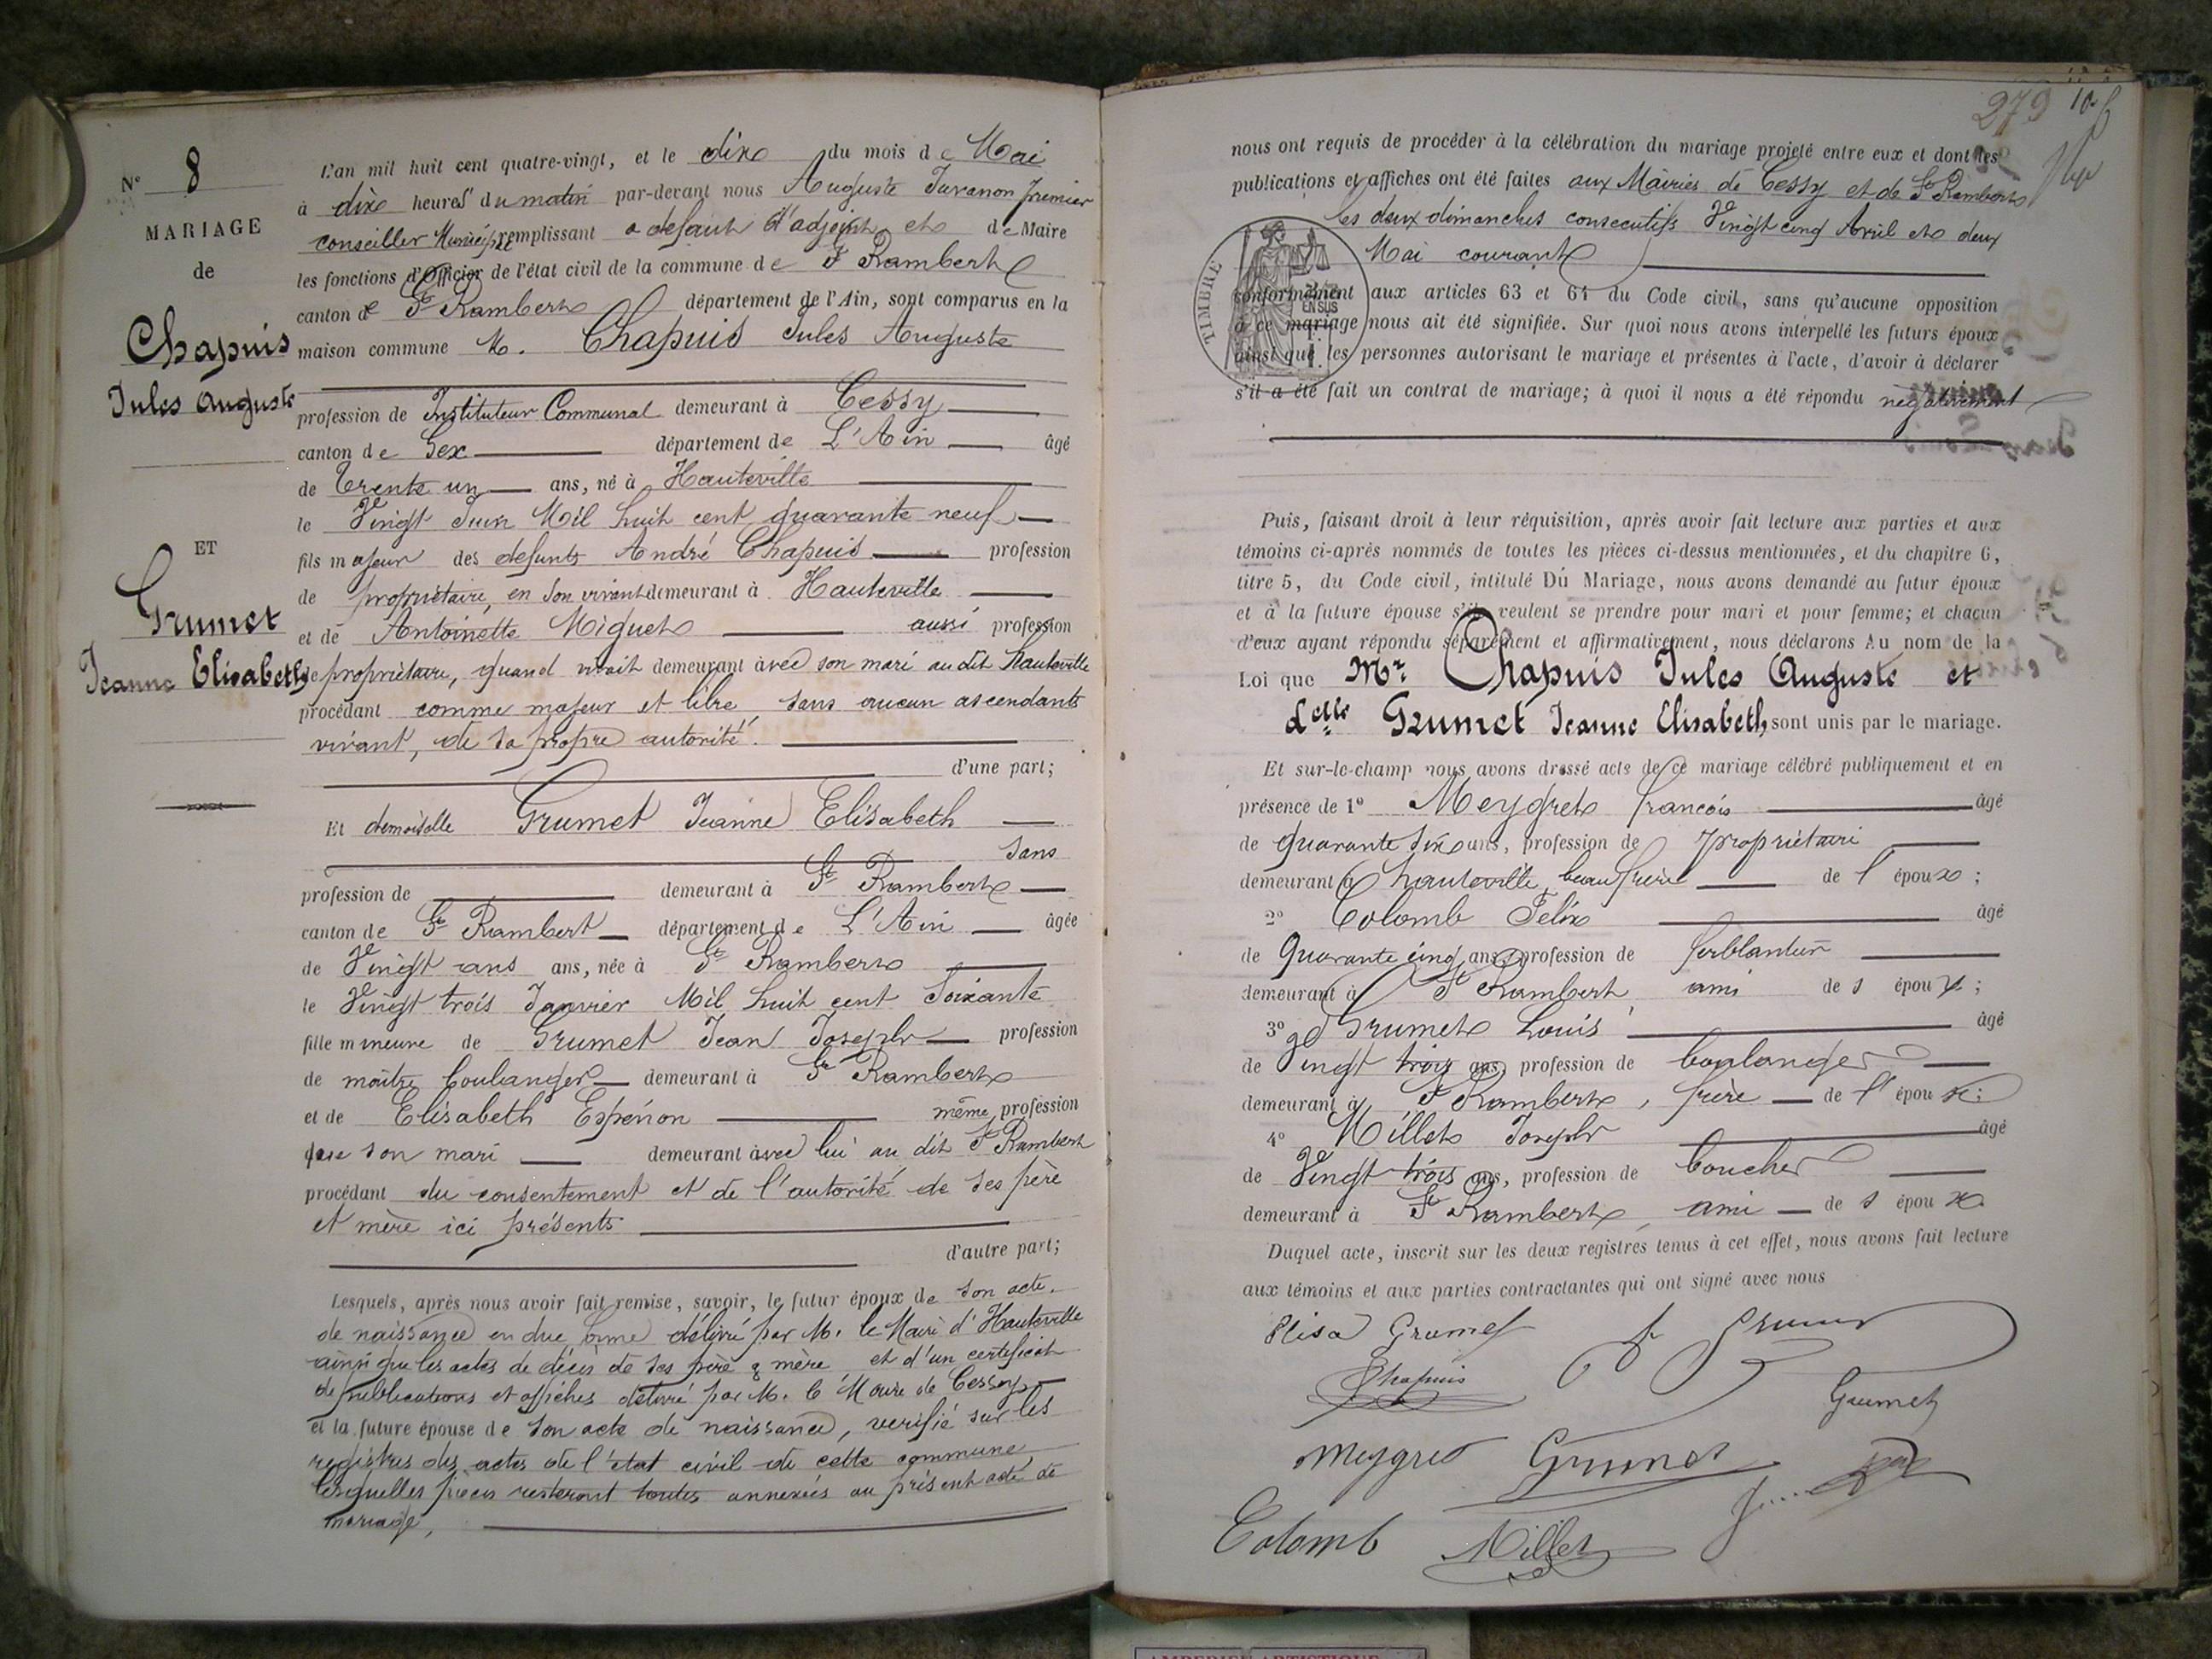 N° 8
MARIAGE
de
Chapuis
Jules Auguste
ET
Grumet
Jeanne Elisabeth
L'an mil huit cent quatre-vingt, et le dix du mois de Mai
à dix heures du matin par-devant nous Auguste Juvanon premier
conseiller Municipal remplissant a defaut d'adjoint et de Maire
les fonctions d'Officier de l'état civil de la commune de St Rambert
canton de St Rambert département de l'Ain, sont comparus en la
maison commune M. Chapuis Jules Auguste
profession de Instituteur Communal demeurant à Cessy
canton de Gex département de L'Ain âgé
de trente un ans, né à Hauteville
le Vingt Juin Mil huit cent quarante neuf
fils majeur des defunts André Chapuis profession
de propriétaire, en son vivant demeurant à Hauteville
et de Antoinette Miguet aussi profession
de propriétaire, quand vivait demeurant avec son mari au dit Hauteville
procédant comme majeur et libre, sans aucun ascendants
vivant, de sa propre autorité.
d'une part;
Et demoiselle Grumet Jeanne Elisabeth
sans
profession de demeurant à St Rambert
canton de St Rambert département de L'Ain âgée
de Vingt ans ans, née à St Rambert
le Vingt trois Janvier Mil huit cent soixante
fille mineure de Grumet Jean Joseph profession
de maître boulanger demeurant à St Rambert
et de Elisabeth Espénon même profession
que son mari demeurant avec lui au dit St Rambert
procédant du consentement et de l'autorité de ses père
et mère ici présents
d'autre part;
Lesquels, après nous avoir fait remise, savoir, le futur époux de son acte
de naissance en due forme délivré par M. le Maire d'Hauteville
ainsi que les actes de décès de ses père & mère et d'un certificat
de publications et affiches délivré par M. le Maire de Cessy
et la future épouse de son acte de naissance, verifié sur les
registres des actes de l'état civil de cette commune
lesquelles pièces resteront toutes annexées au présent acte de
mariage,
279
nous ont requis de procéder à la célébration du mariage projeté entre eux et dont les
publications et affiches ont été faites aux Mairies de Cessy et de St Rambert
les deux dimanches consecutifs Vingt cinq Avril et deux
Mai courant
TIMBRE
EN SUS
conformément aux articles 63 et 64 du Code civil, sans qu'aucune opposition
à ce mariage nous ait été signifiée. Sur quoi nous avons interpellé les futurs époux
ainsi que les personnes autorisant le mariage et présentes à l'acte, d'avoir à déclarer
s'il a été fait un contrat de mariage; à quoi il nous a été répondu négativement
Puis, faisant droit à leur réquisition, après avoir fait lecture aux parties et aux
témoins ci-après nommés de toutes les pièces ci-dessus mentionnées, et du chapitre 6,
titre 5, du Code civil, intitulé Du Mariage, nous avons demandé au futur époux
et à la future épouse s'ils veulent se prendre pour mari et pour femme; et chacun
d'eux ayant répondu séparément et affirmativement, nous déclarons Au nom de la
Loi que Mr Chapuis Jules Auguste et
delle Grumet Jeanne Elisabeth sont unis par le mariage.
Et sur-le-champ nous avons dressé acte de ce mariage célébré publiquement et en
présence de 1° Meygret françois âgé
de quarante six ans, profession de propriétaire
demeurant à hauteville, beau frère de l'époux;
2° Colomb Félix âgé
de Quarante cinq ans, profession de ferblantier
demeurant à St Rambert, ami de s époux;
3° Grumet Louis âgé
de Vingt trois ans, profession de boulanger
demeurant à St Rambert, frère de l'épouse;
4° Millet Joseph âgé
de Vingt trois ans, profession de boucher
demeurant à St Rambert, ami de s époux.
Duquel acte, inscrit sur les deux registres tenus à cet effet, nous avons fait lecture
aux témoins et aux parties contractantes qui ont signé avec nous
Elisa Grumet
Chapuis
Grumet
Meygret Grumet
Colomb Millet